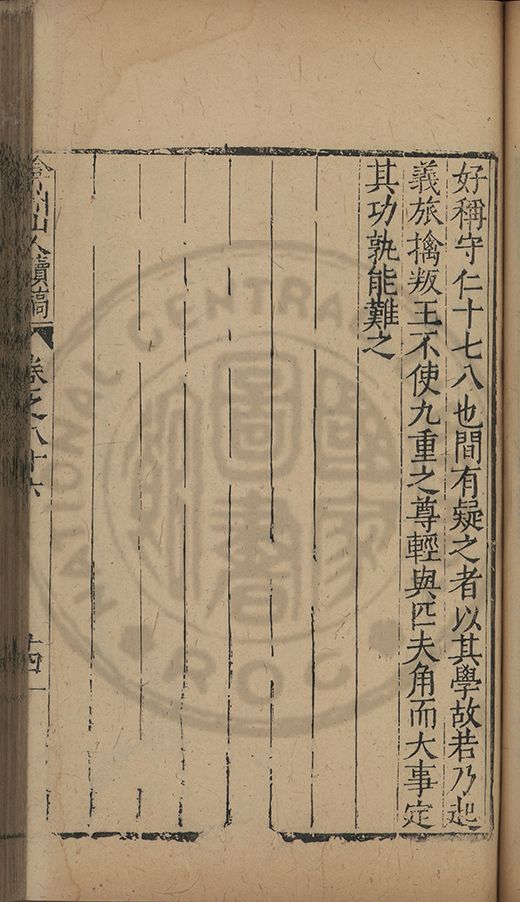 好稱守仁十七八也間有疑之者以其學故若乃起
義旅擒叛王不使九重之尊輕與匹夫角而大事定
其功孰能難之
弇州山人續稿 卷之八十六 十四
NATIONAL CENTRAL
國家圖書館
ROC